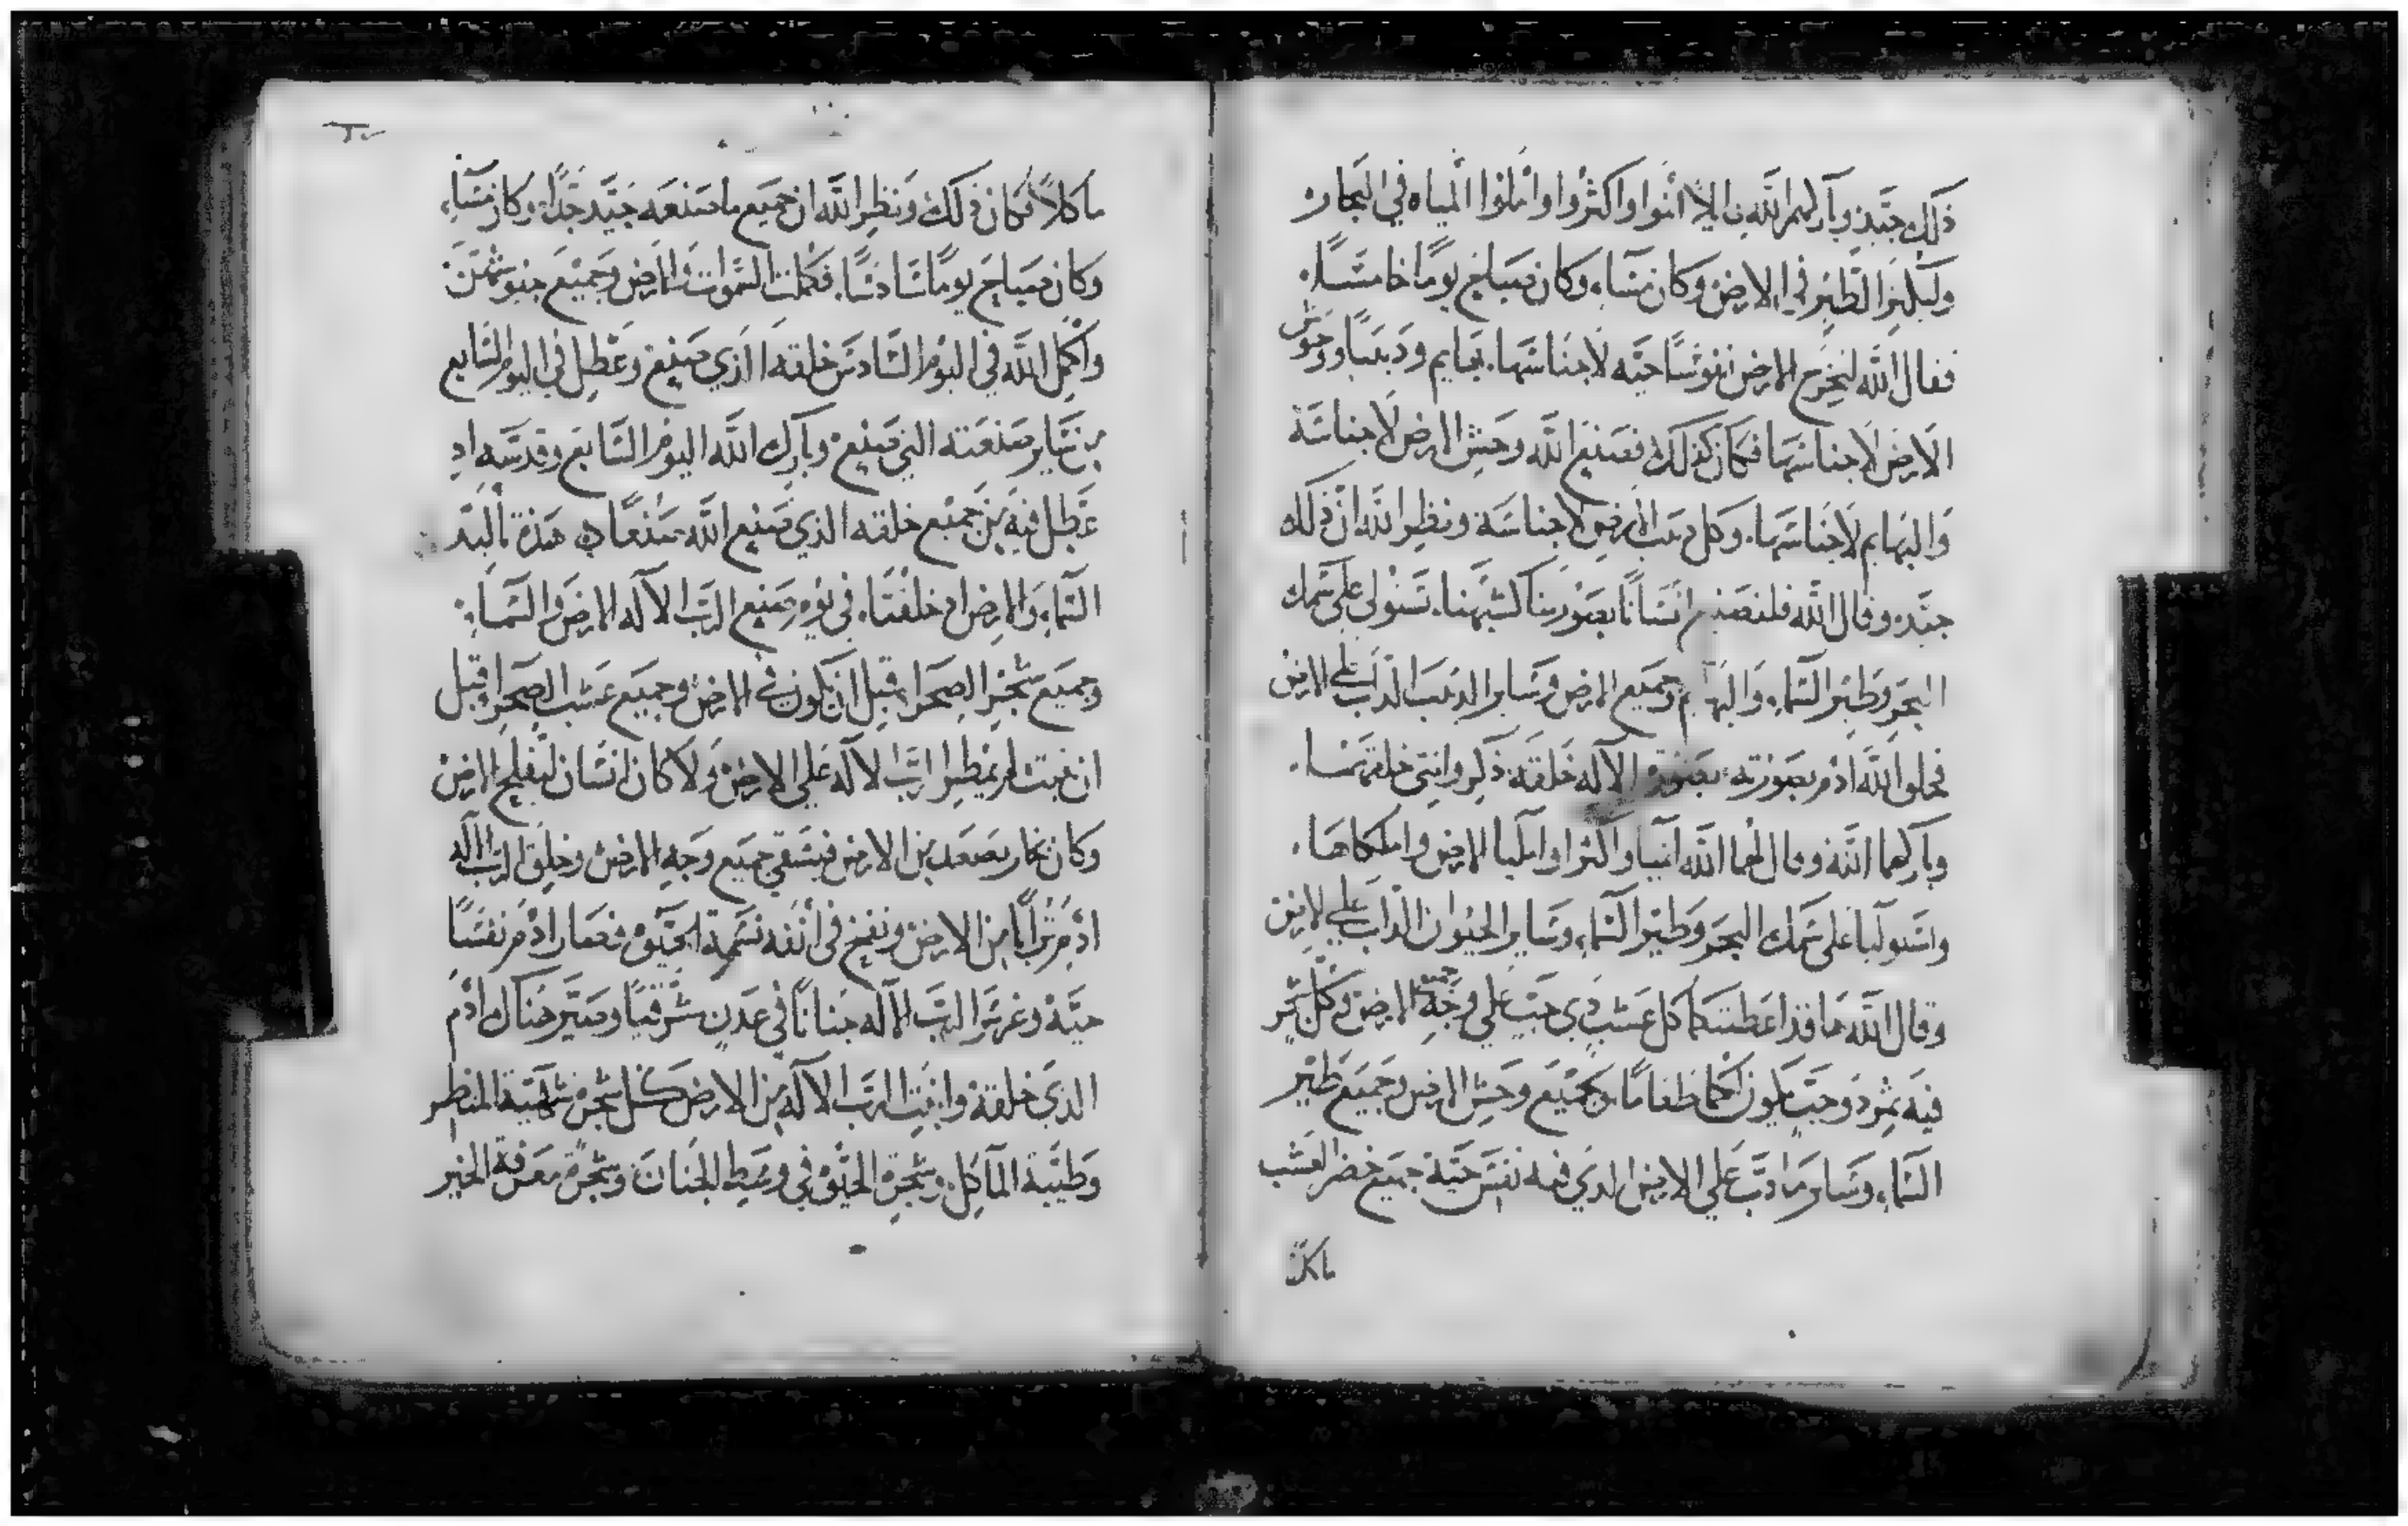 ذلك جيد وباركهم الله قايلا انموا واكثروا واملوا المياه في البحار
وليكثر الطير في الارض وكان مسآء وكان صباح يومًا خامسًا
فقال الله لتخرج الارض نفوسًا حيّه لاجناسها بهايم ودبيبًا ووحوش
الارض لاجناسها فكان كذلك فصنع الله وحش الارض لاجناسة
والبهايم لاجناسها وكل دبيب الارض لاجناسة ونظر الله ان ذلك
جيد وقال الله فلنصنع انسانًا بصورتنا كشبهنا تستولي على سمك
البحر وطير السّماء والبهايم وجميع الارض وساير الدبيب الداب على الارض
فخلق الله ادم بصورته بصورة الاله خلقة ذكر وانثي خلقهما
وباركهما الله وقال لهما الله انميا واكثرا واملّيا الارض واملكاها
واستوليا على سمك البحر وطير السماء وساير الحيوان الداب على الارض
وقال الله ها قد اعطيتكما كل عشب ذي حبّ على وجه الارض وكل شجر
فيه ثمر ذو حبّ يكون لكما طعامًا ولجميع وحش الارض وجميع طير
السّماء وساير ما دبّ على الارض الذي فيه نفس حيّة جميع خضر العشب
ماكلا
ماكلاً فكان ذلك ونظر الله ان جميع ما صنعه جيّد جدًا وكان مسآء
وكان صباح يومًا سادسًا فكملت السّموات والارض وجميع جيوشهن
واكمل الله في اليوم السّادس خلقه الذي صنع وعطل في اليوم السّابع
من ساير صنعته التي صنع وبارك الله اليوم السّابع وقدسه اذ
عطل فيه من جميع خلقه الذي صنع الله صنعًا هذة
السّماء والارض اذ خلقتا في يوم صنع الرّب الاله الارض والسّمآء
وجميع شجر الصحرا قبل ان يكون في الارض وجميع عشب الصحرا قبل
ان ينبت لم يمطر الرّب الاله على الارض ولا كان انسان ليفلح الارض
وكان بخار يصعد من الارض فيسقي جميع وجه الارض وخلق الرب الاله
ادم ترابًا من الارض ونفخ في انفه نسمة الحيوة فصار ادم نفسًا
حيّة وغرس الرّب الاله جنانًا في عدن شرقيًا وصيّر هناك ادم
الذي خلقة وانبت الرّب الاله من الارض كل شجرة شهيّة المنظر
وطيّبة المآكل وشجرة الحيوة في وسط الجنان وشجرة معرفة الخير